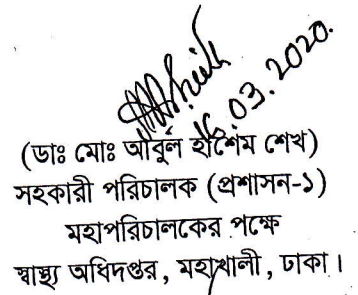 03.2020.
(ডাঃ মোঃ আবুল হাশেম শেখ)
সহকারী পরিচালক (প্রশাসন-১)
মহাপরিচালকের পক্ষে
স্বাস্থ্য অধিদপ্তর, মহাখালী, ঢাকা।